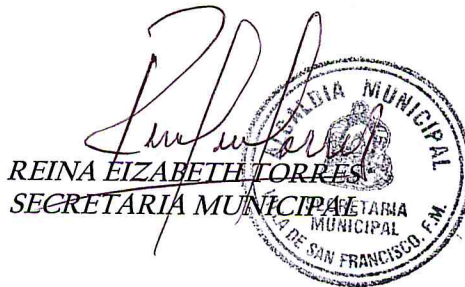 REINA EIZABETH TORRES
SECRETARIA MUNICIPAL
ALCALDIA MUNICIPAL
SECRETARIA
MUNICIPAL
DE SAN FRANCISCO, F.M.